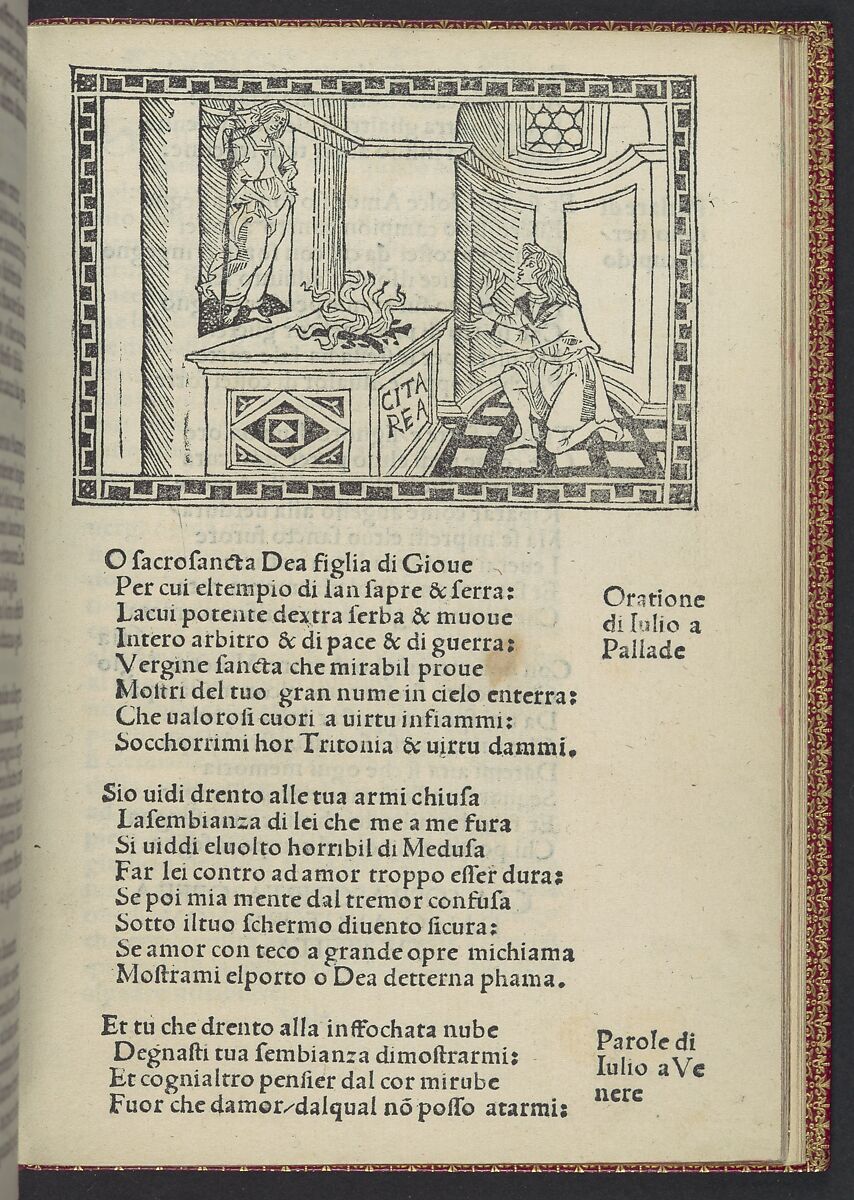 CITA
REA
O ſacroſancta Dea figlia di Gioue
Per cui eltempio di Ian ſapre & ſerra:
Lacui potente dextra ſerba & muoue
Intero arbitro & di pace & di guerra:
Vergine ſancta che mirabil proue
Moſtri del tuo gran nume in cielo enterra:
Che ualoroſi cuori a uirtu infiammi:
Socchorrimi hor Tritonia & uirtu dammi.
Oratione
di Iulio a
Pallade
Sio uidi drento alle tua armi chiuſa
Laſembianza di lei che me a me fura
Si uiddi eluolto horribil di Meduſa
Far lei contro ad amor troppo eſſer dura:
Se poi mia mente dal tremor confuſa
Sotto iltuo ſchermo diuento ſicura:
Se amor con teco a grande opre michiama
Moſtrami elporto o Dea detterna phama.
Et tu che drento alla inffochata nube
Degnaſti tua ſembianza dimoſtrarmi:
Et cognialtro penſier dal cor mirube
Fuor che damor/dalqual nõ poſſo atarmi:
Parole di
Iulio a Ve
nere